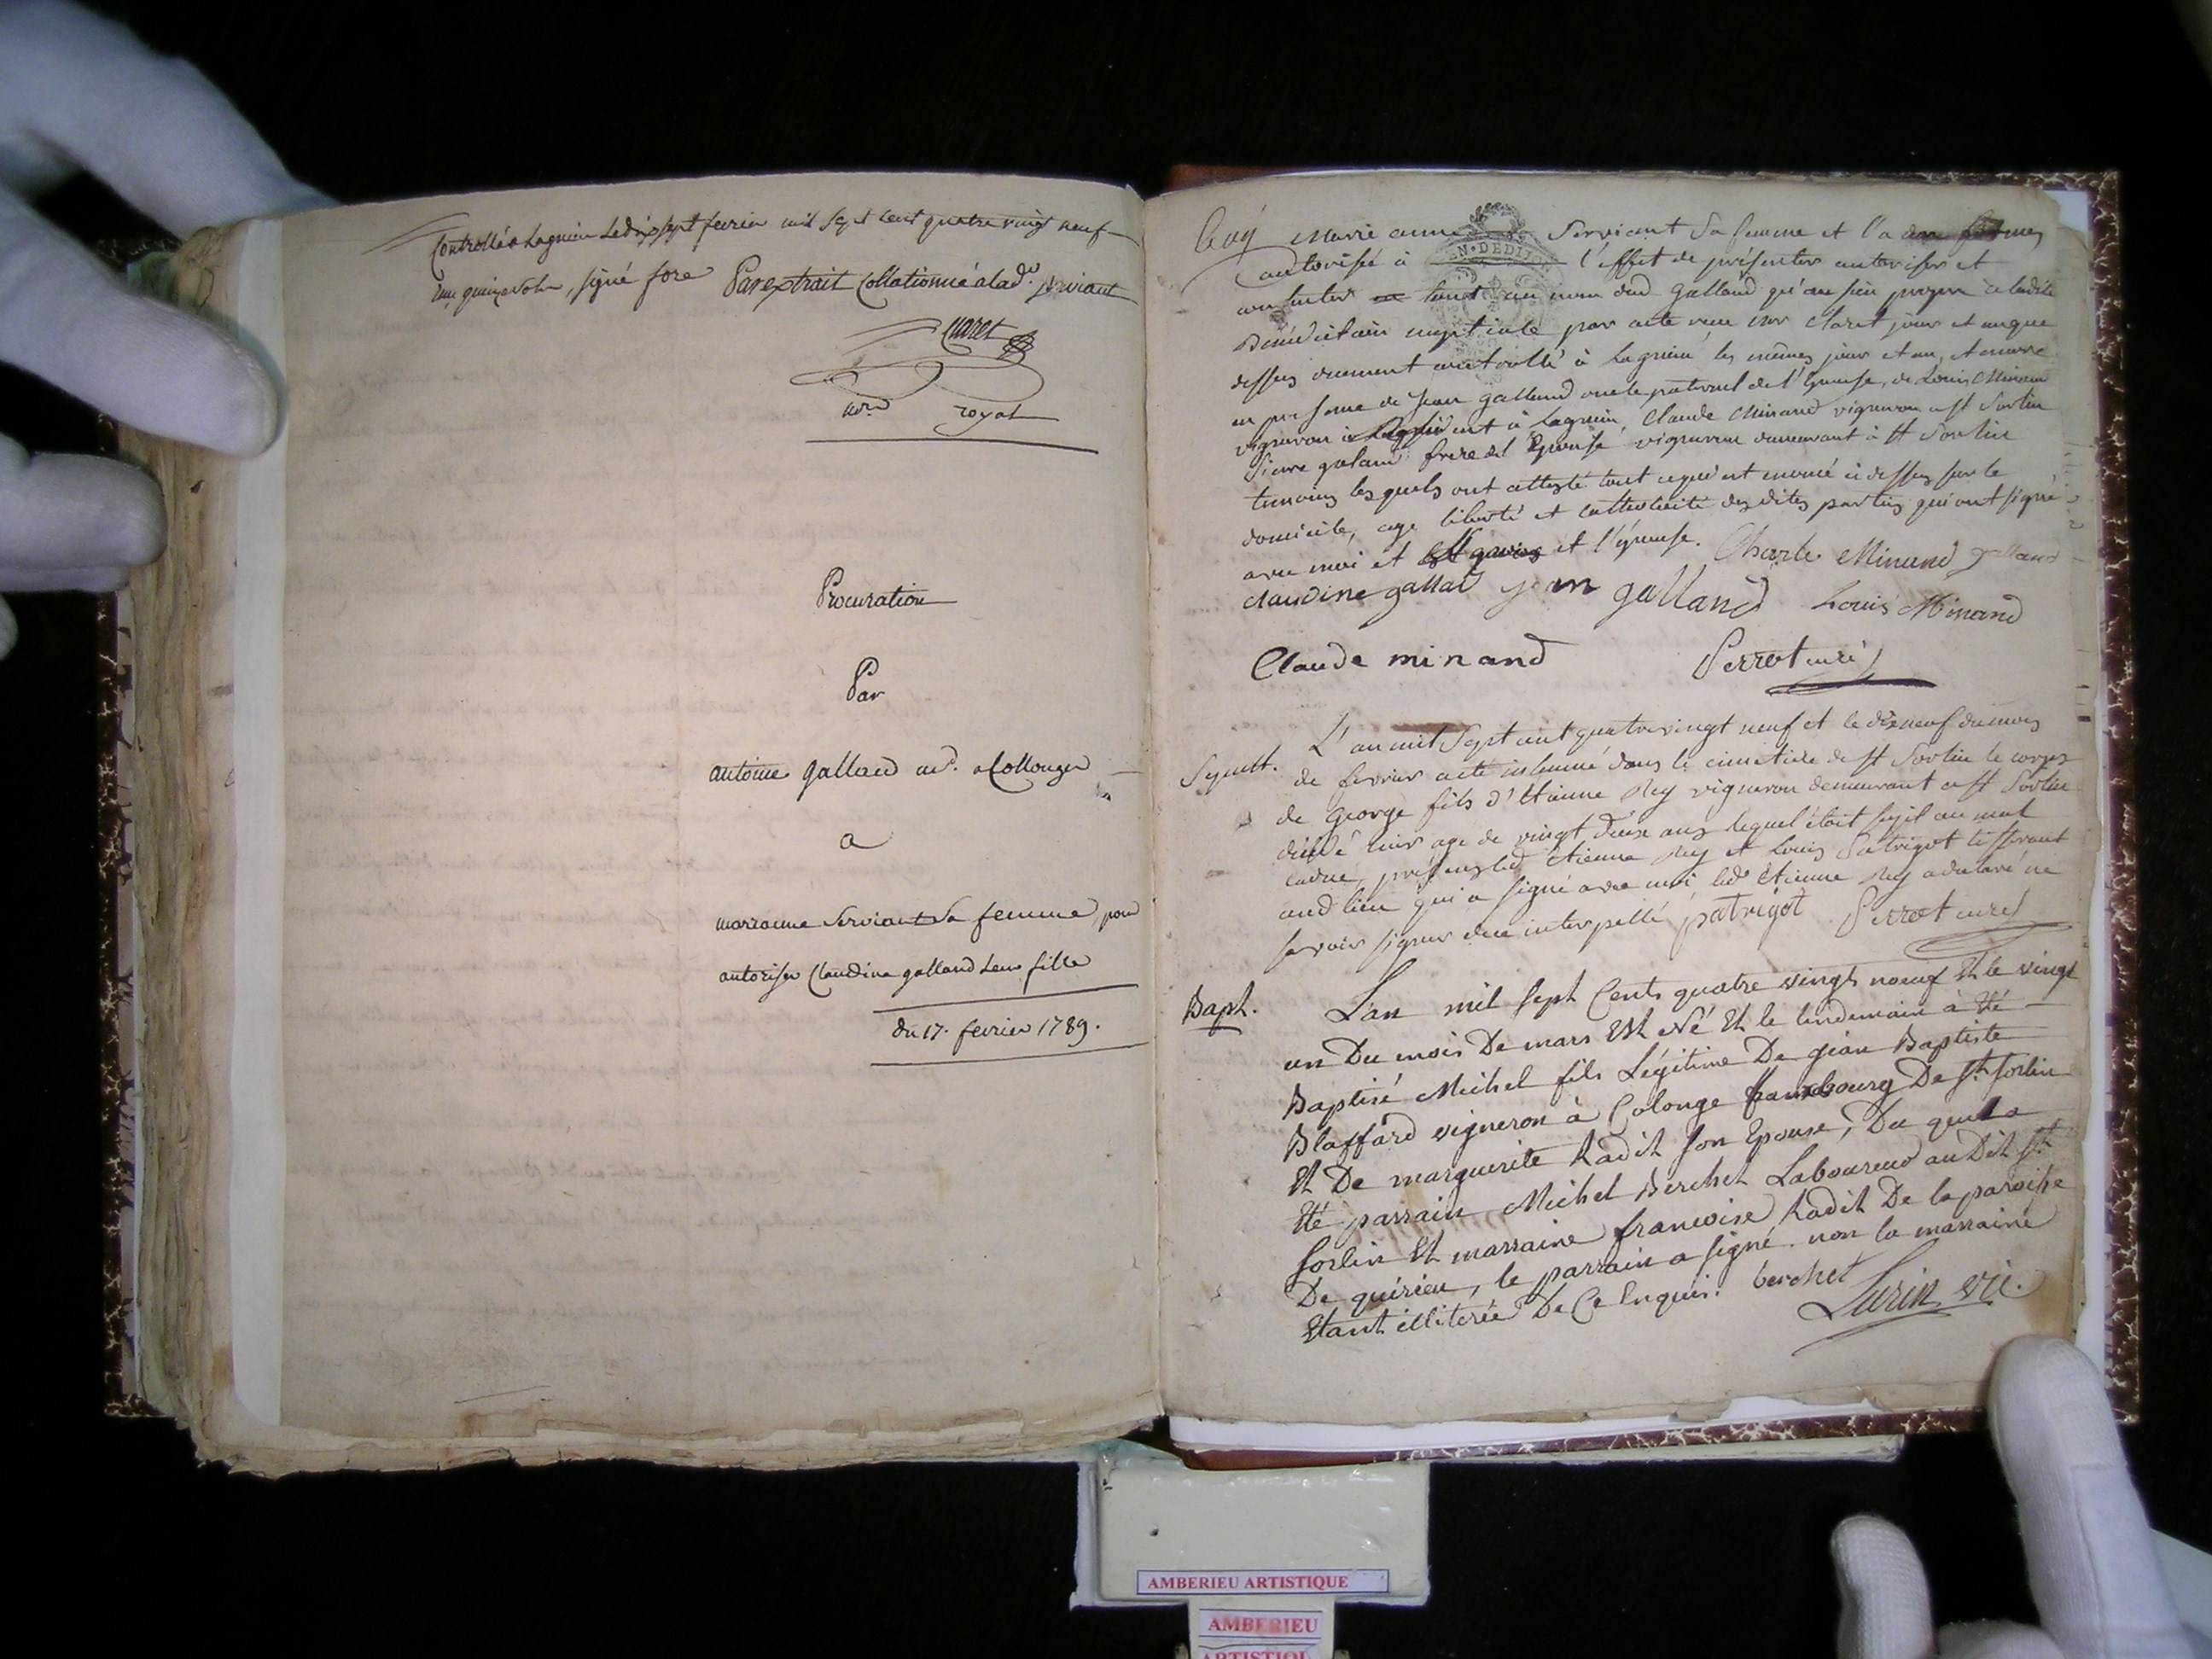 Controllé a Lagnieu Le dix sept fevrier mil sept cent quatre vingt neuf
quinze sols, signé fore Par extrait Collationné a lad.e serviant
Claret
not.re royal
Procuration
Par
antoine galland a Collonges
a
marianne Serviant Sa femme, pour
autoriser Claudine galland Leur fille
du 17. fevrier 1789.
marie anne Serviant Sa femme et l'a
autorisée à l'effet de présenter autoriser et
consentir tant au nom dud galland qu'au sien propre à ladite
Bénédiction nuptiale par acte reçu Claret jour et an que
dessus duement controllé à Lagnieu les mêmes jour et an, et encore
en personne de jean galland oncle paternel de l'Epouse, de Louis Minand
vigneron à Lagnieu, Claude Minand vigneron a St Sorlin
Pierre galland frere de l'Epouse vigneron demeurant à St Sorlin
temoins les quels ont attesté tout ce qui est enoncé ci dessus sur le
domicile, age liberté et catholicité des dites parties qui ont signé
avec moi et et l'épouse. Charle Minand galland
claudine galland jean galland Louis Minand
Claude minand Perrot curé
Sepult. L'an mil Sept cent quatrevingt neuf et le dix neuf du mois
de fevrier a été inhumé dans le cimetiere de St Sorlin le corps
de George fils d'Etienne Rey vigneron demeurant a St Sorlin
décédé hier age de vingt deux ans lequel étoit sujet au mal
caduc, présens led Etienne Rey et Louis Patrigot tisserant
aud lieu qui a signé avec moi, led Etienne Rey a declaré ne
savoir signer de ce interpellé patrigot Perrot curé
Bapt. L'an mil sept Cents quatre vingts noeuf Et le vingt
un Du mois De mars Est Né Et le lendemain à Eté
Baptisé Michel fils Légitime De jean Baptiste
Blaffard vigneron à Colonge fauxbourg De St sorlin
Et De marguerite Radit son Epouse, Du quel a
Eté parrain Michel Berchet Laboureur au Dit St
sorlin Et marraine francoise Radit De la paroisse
De quirieu, le parrain a signé non la marraine
Etant illiterée De Ce Enquis. berchet
Lurin vic.
AMBERIEU ARTISTIQUE
AMBERIEU
ARTISTIQUE